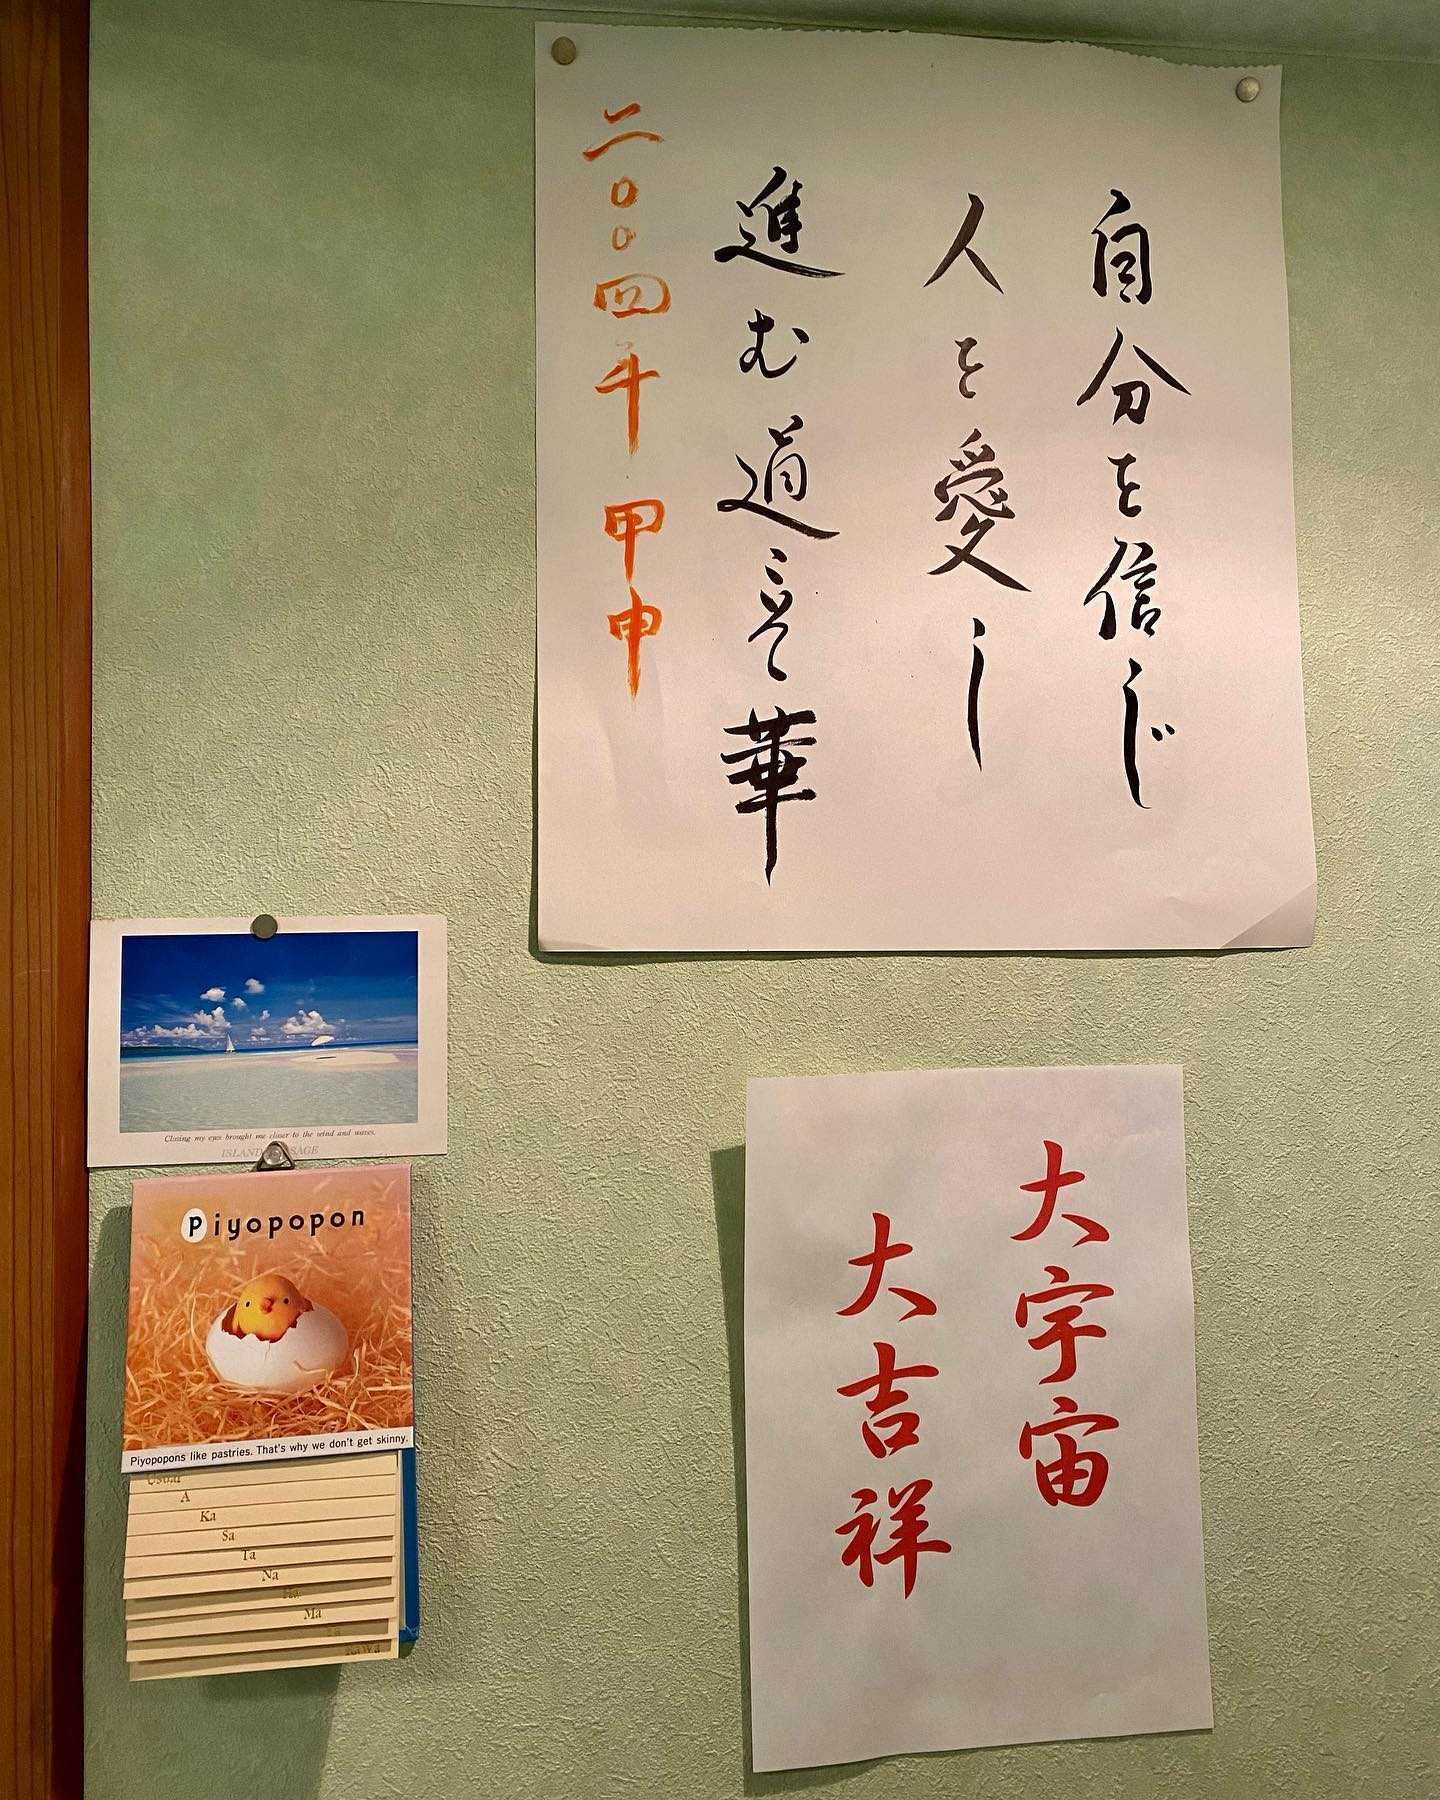 自分を信じ
人を愛し
進む道こそ華
二〇〇四年 甲申
Closing my eyes brought me closer to the wind and waves.
ISLAND
Piyopopon
Piyopopons like pastries. That's why we don't get skinny.
A
Ka
Sa
Ta
Na
Ha
Ma
Ya
RaWa
大宇宙
大吉祥